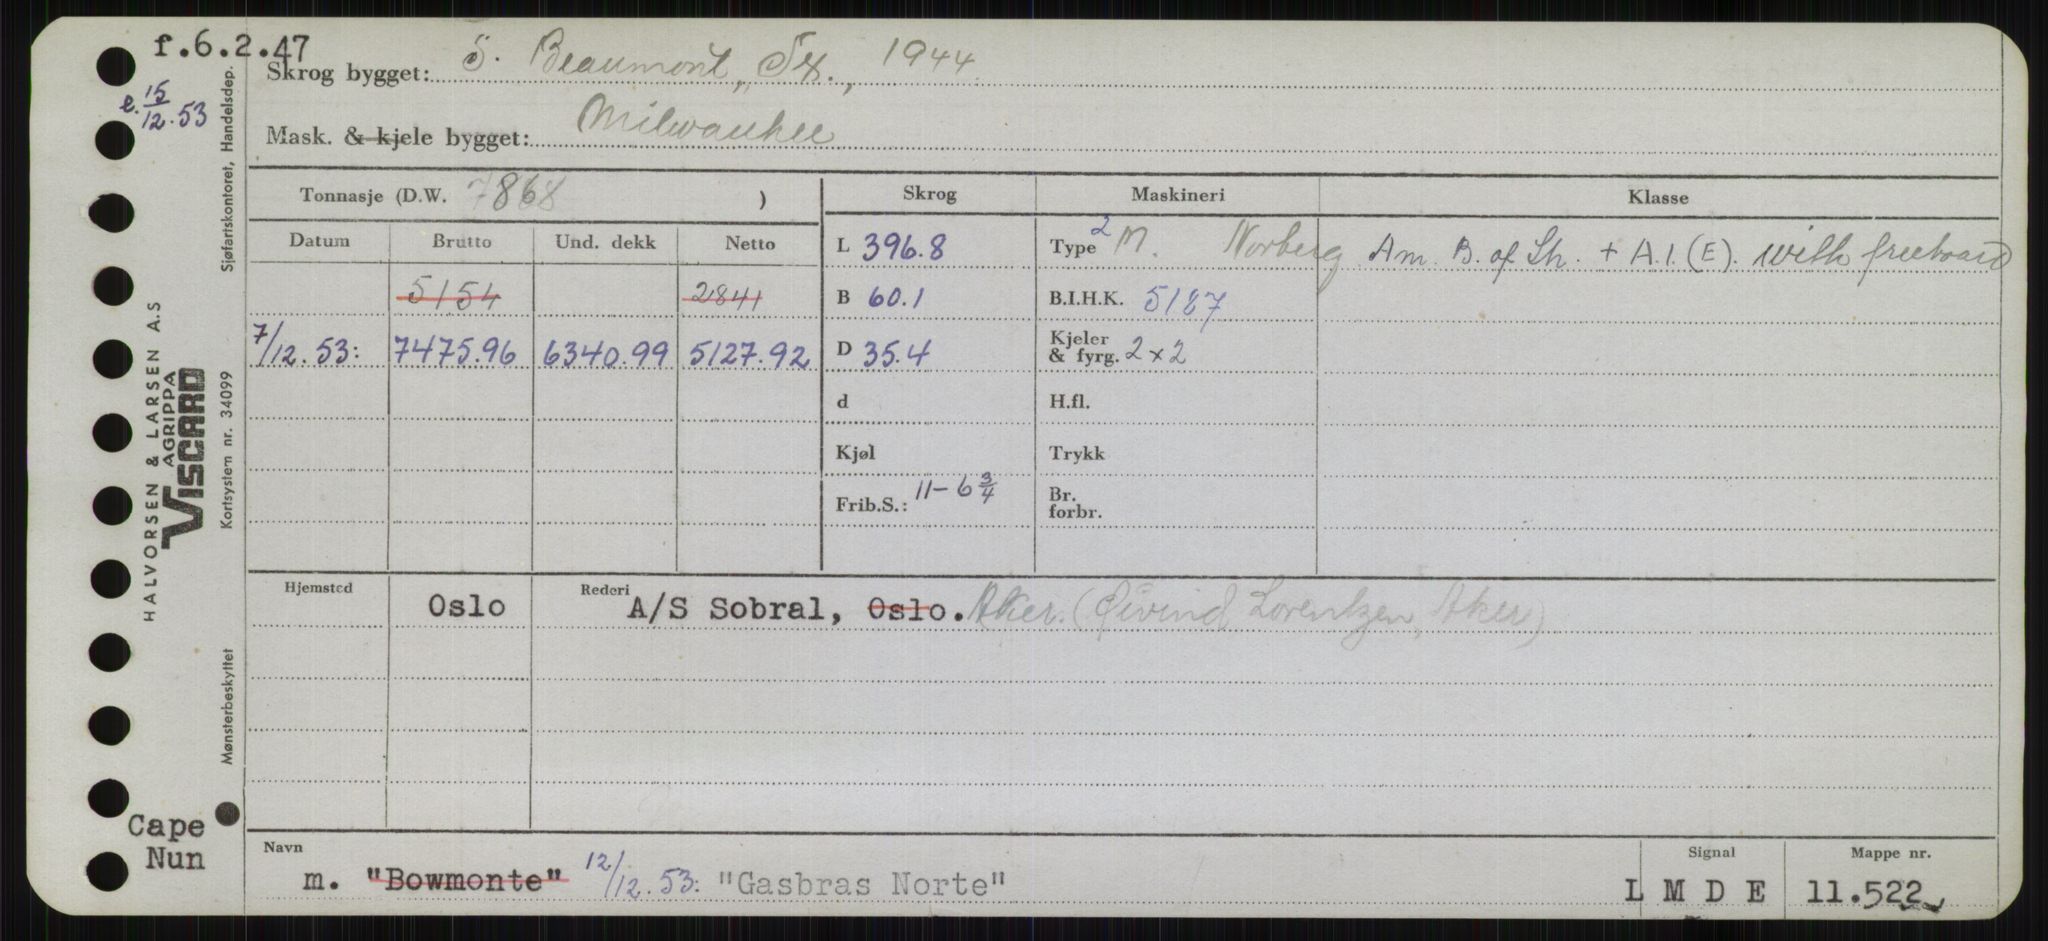 f.6.2.47
e. 15/12.53
Skrog bygget: S. Beaumont, Tx., 1944
Mask. & kjele bygget: Milwaukee
Tonnasje (D.W. 7868 )
Skrog Maskineri Klasse
Datum Brutto Und. dekk Netto
L 396.8 Type 2 M. Norberg Am. B. of Sh. + A.1.(E). with freeboard
5154 2841 B 60.1 B.I.H.K. 5127
7/12.53: 7475.96 6340.99 5127.92 D 35.4 Kjeler & fyrg. 2x2
d H.fl.
Kjøl Trykk
Frib.S.: 11-6 3/4 Br. forbr.
Hjemsted Rederi
Oslo A/S Sobral, Oslo. Aker. (Øivind Lorentzen, Aker)
Navn Signal Mappe nr.
m. "Bowmonte" 12/12.53: "Gasbras Norte" L M D E 11.522
Cape
Nun
HALVORSEN & LARSEN A.S
AGRIPPA
VISCARD
Sjøfartskontoret, Handelsdep.
Kortsystem nr. 34099
Mønsterbeskyttet